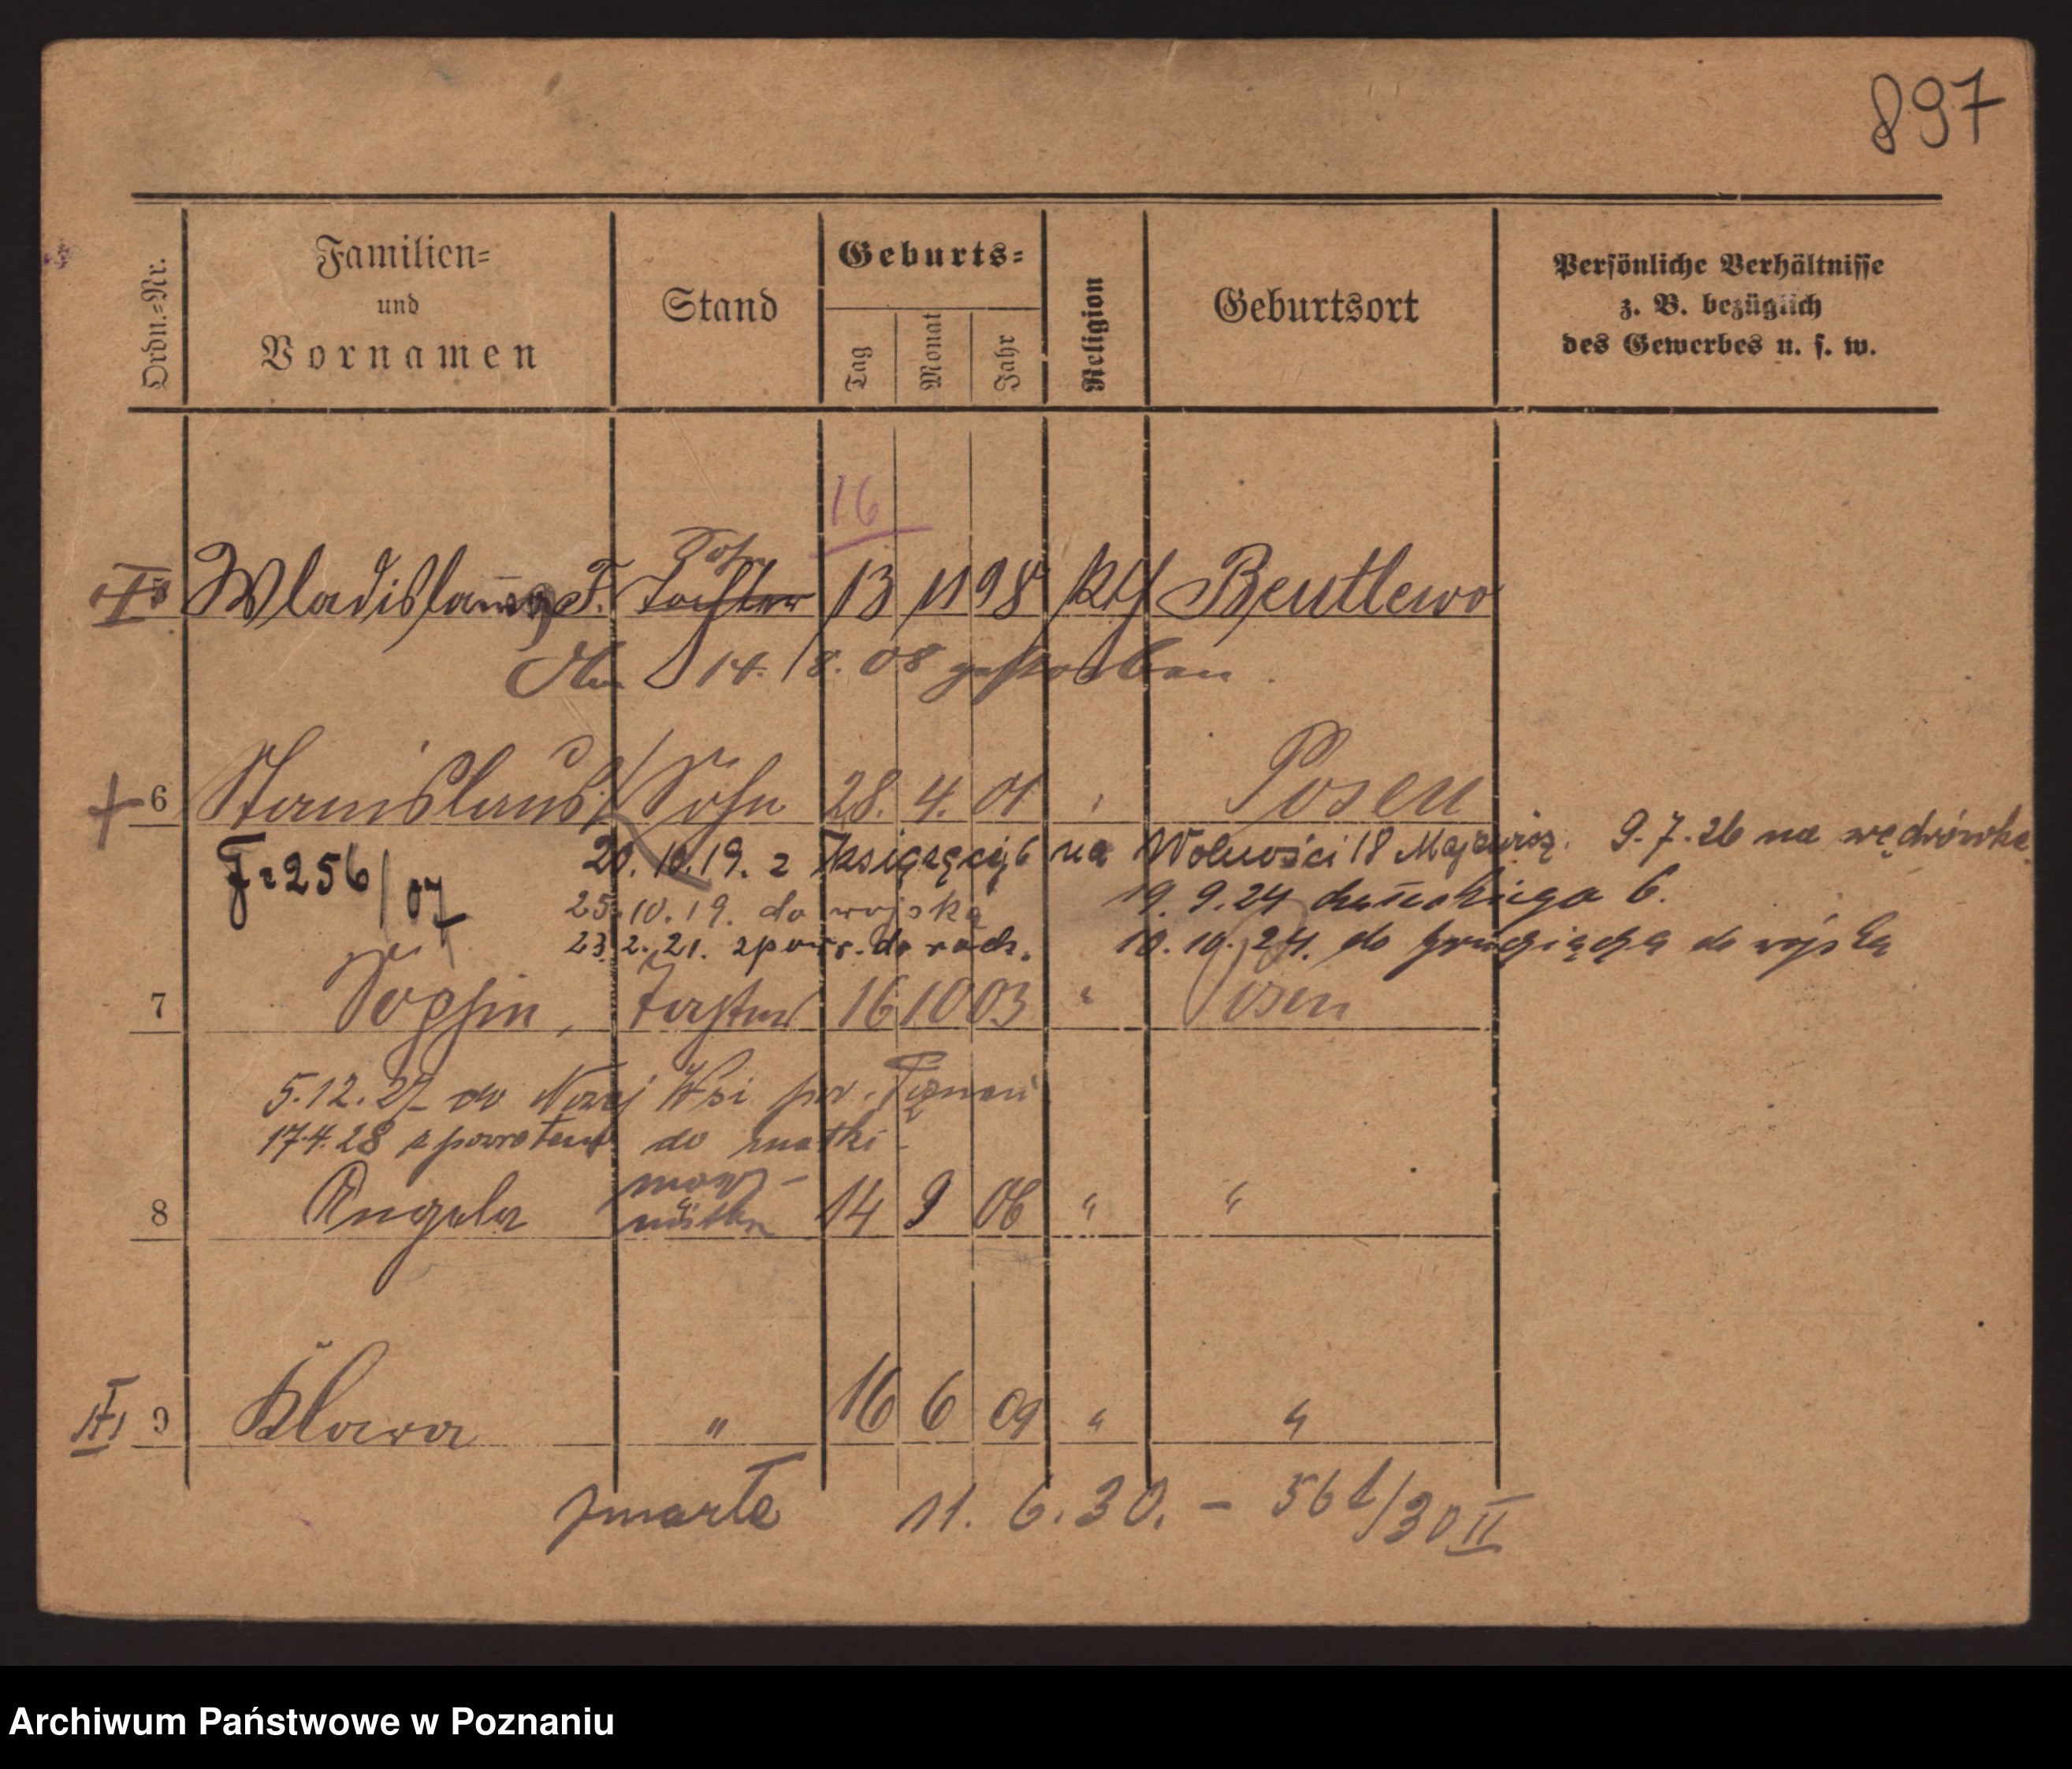 897
Ordn.=Nr.
Familien=
und
Vornamen
Stand
Geburts=
Tag
Monat
Jahr
Religion
Geburtsort
Persönliche Verhältnisse
z. B. bezüglich
des Gewerbes u. s. w.
16
Sohn
5 Wladislaus F. Tochter 13 11 98 Kth Bentlewo
Am 14. 8. 08 gestorben.
6 Stanislaus Sohn 28. 4. 01 Posen
20.10.19. z Książęcej 6 na Wolności 18 9.7.26 na wędrówkę
F=256/07
25.10.19. do wojska 19.9.24 6.
23.2.21. zpowr. do rodz. 10.10.24. do Grudziądza do wojska
7 Sophie, Tochter 16 10 03 " Posen
5.12.27 do Nowej Wsi pow. Poznań
17.4.28 z powrotem do matki
8 Angela 14 9 06 " "
III 9 Klara " 16 6 09 " "
zmarła 11.6.30. - 561/30 II
Archiwum Państwowe w Poznaniu